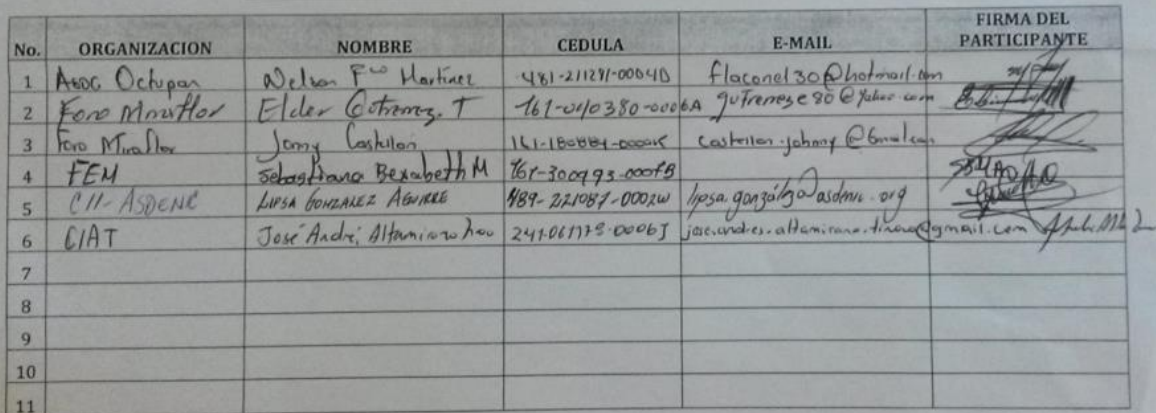 No. ORGANIZACION NOMBRE CEDULA E-MAIL FIRMA DEL PARTICIPANTE
1 Asoc Octupan Welson Fco Martinez 481-211291-0004D flaconel30@hotmail.com
2 Foro Miraflor Elder Gutierrez. T 161-010380-0006A gutrereze80@yahoo.com
3 Foro Miraflor Jonny Castellon 161-180884-0000K castellon.johnny@Gmail.com
4 FEM Sebastiana Bexabeth M 161-300993-0007B
5 CII-ASDENIC LIPSA GONZALEZ AGUIRRE 489-221087-0002W lipsa.gonzález@asdenic.org
6 CIAT José André Altamirano 241-061178-0006J jose.andres.altamirano.tinoco@gmail.com
7
8
9
10
11